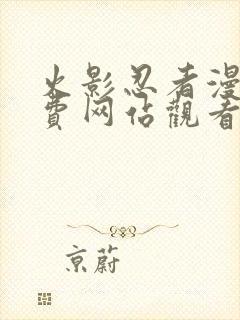 火影忍者漫
费网佔觀看
京蔚